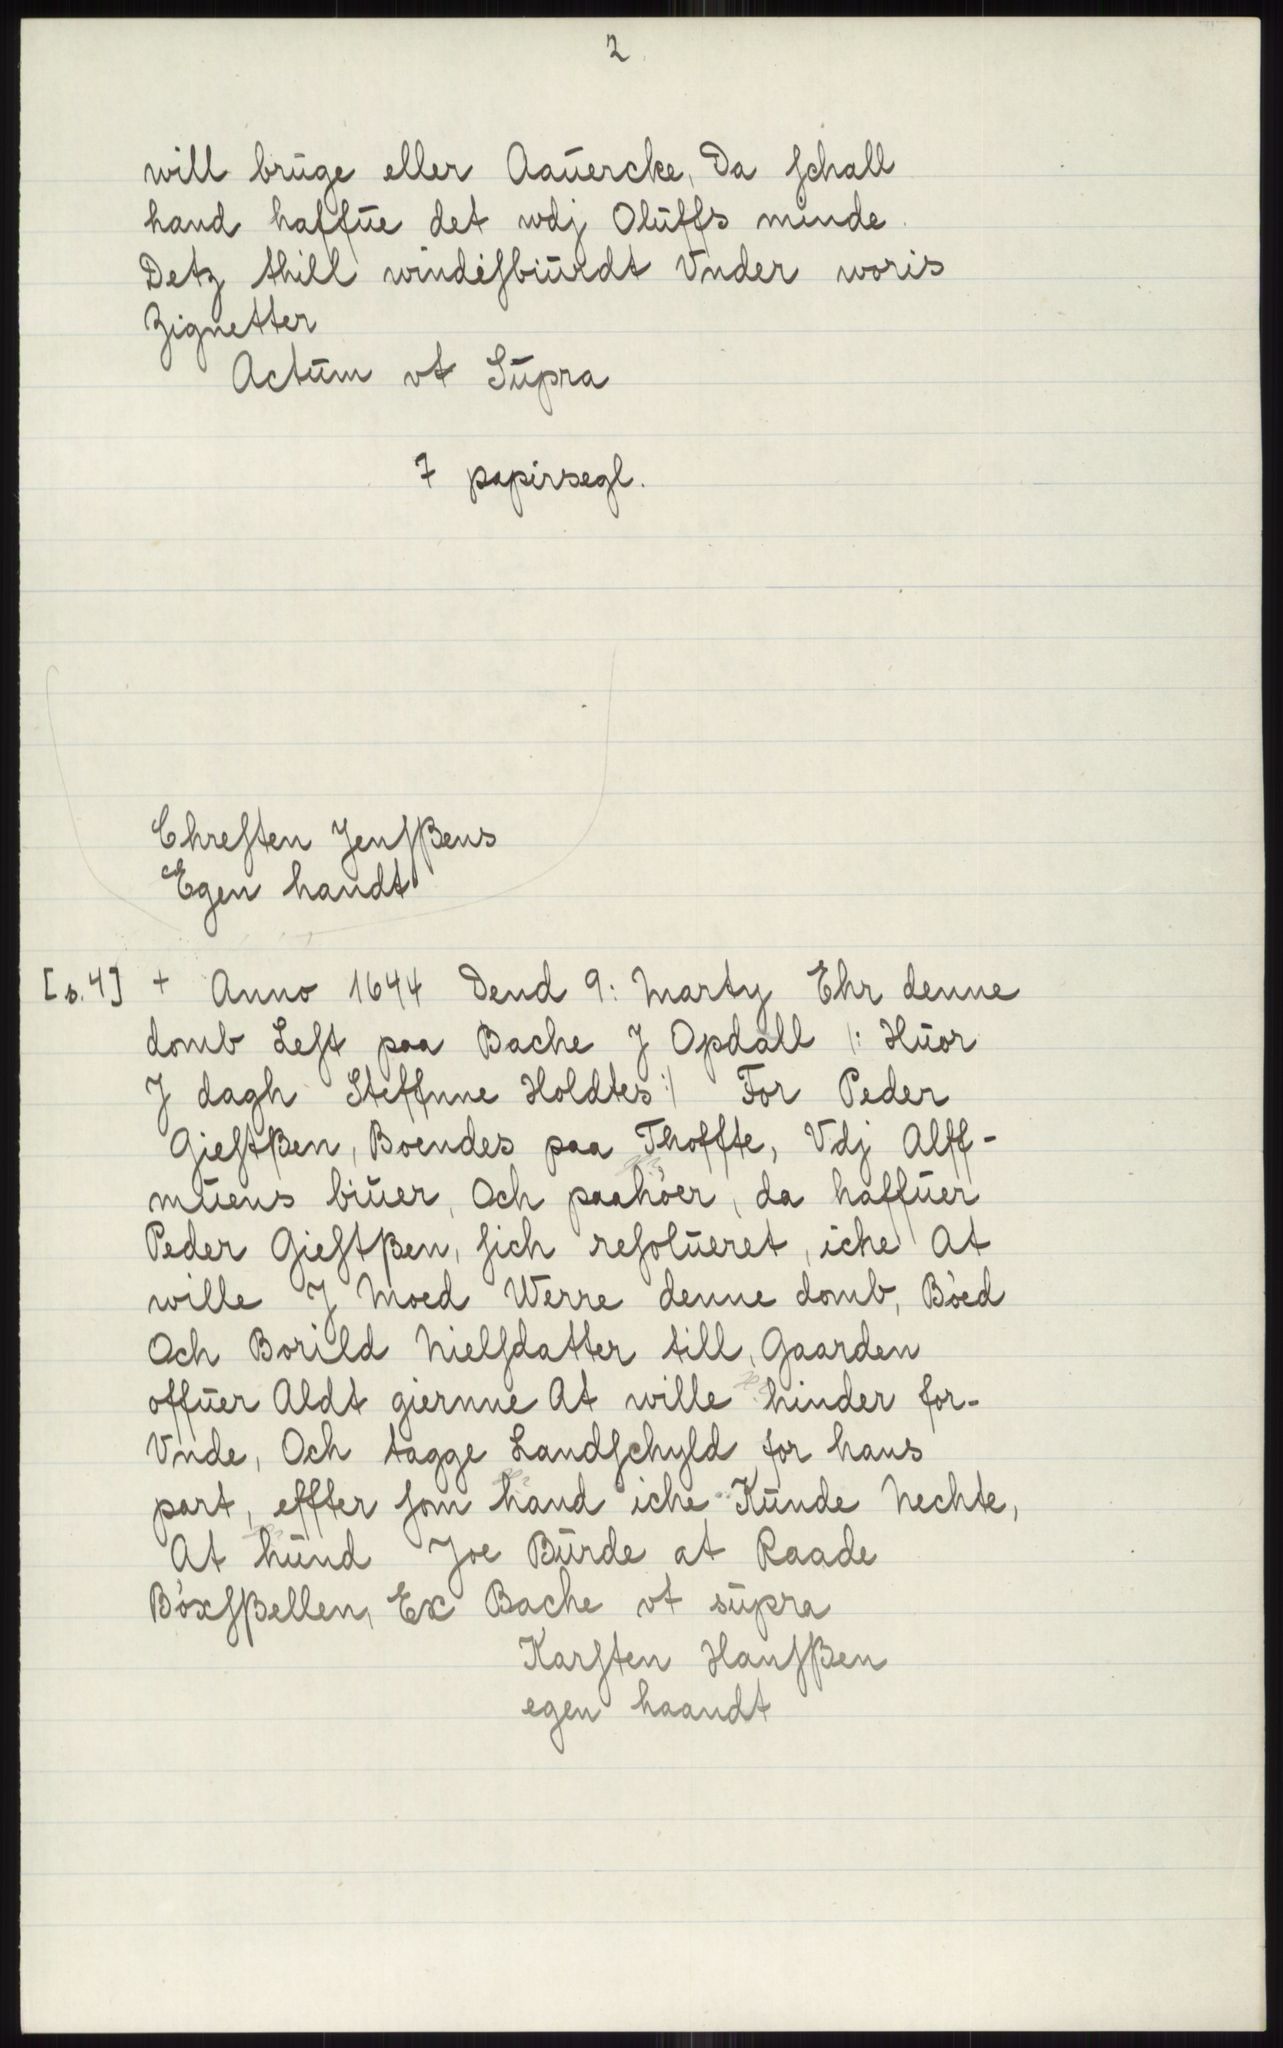 2
will brűge eller Aaűercke, Da ſchall
hand haffűe det wdj Olűffs minde
Detz thill windeſbiűrdt Vnder woris
Zignetter
Actűm vt Sűpra
7 papirsegl.
Chreſten Jenſßens
Egen handt
[s. 4] + Anno 1644 Dend 9: Marty Ehr denne
domb Leſt paa Bache J Opdall /: Hűor
J dagh Steffnne Holdtes :/ For Peder
Gieſtßen, Boendes paa Thoffte, Vdj Alff-
műens biűer, Och paahöer, da haffűer
Peder Gieſtßen, ſich reſolűeret, iche At
wille J Moed Werre denne domb, Böed
Och Borild Nielſdatter till, Gaarden
offűer Aldt giernne At wille hinder for-
Vnde, Och tagge Landſchyld for hans
part, effter ſom hand iche Kűnde Nechte,
At hűnd Joe Bűrde at Raade
Böxſßellen, Ex Bache vt sűpra
Karſten Hanſßen
egen haandt